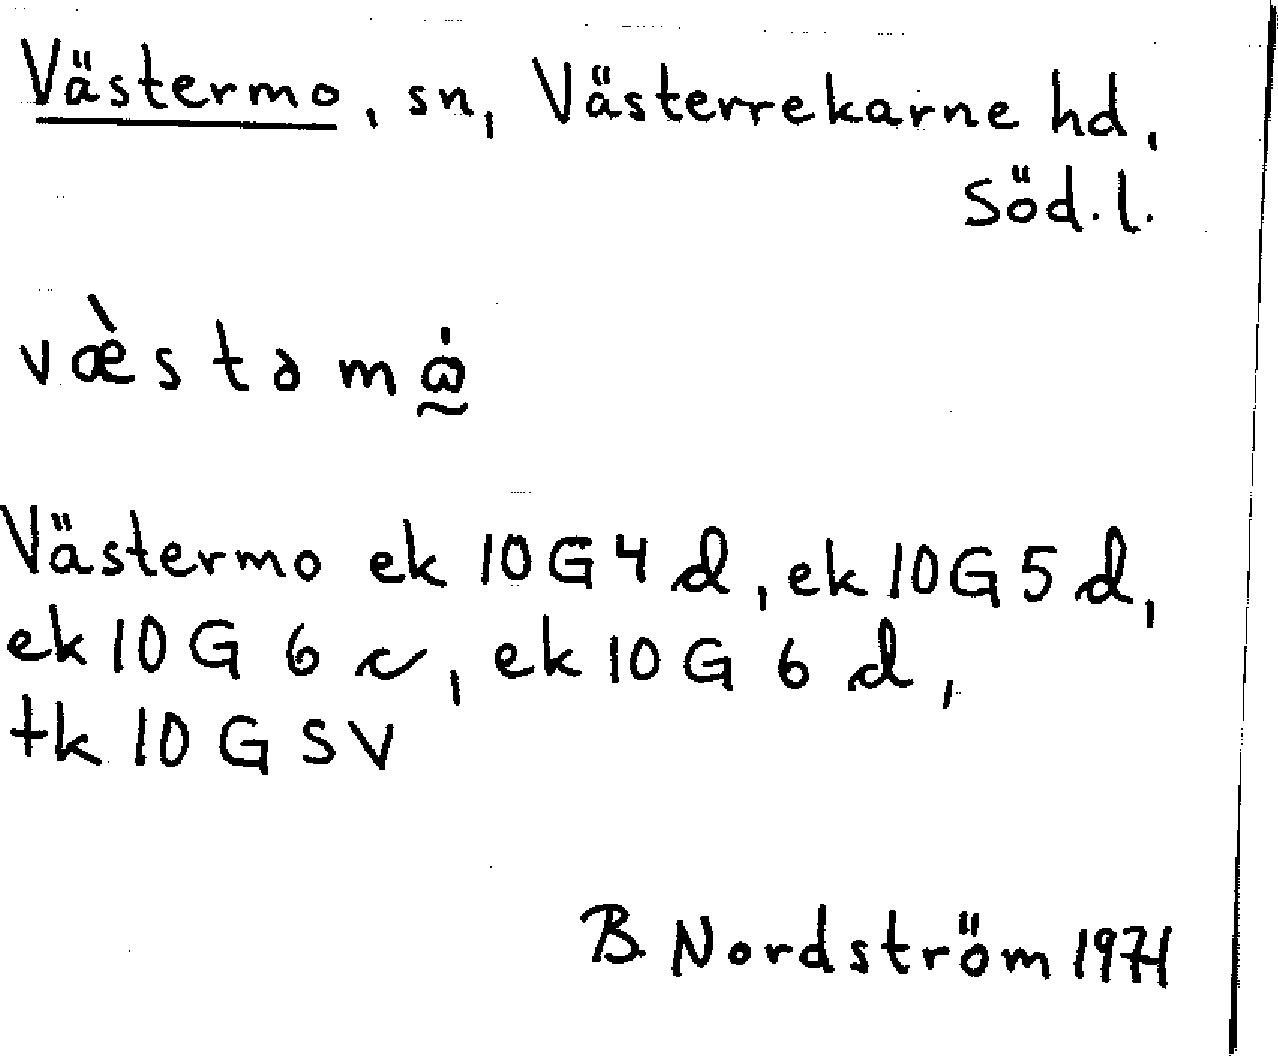 Västermo, sn, Västerrekarne hd,
Söd. l.
væ̀stəmω̰̇
Västermo ek 10G4d, ek 10G5d,
ek 10G 6c, ek 10G 6d,
tk 10G SV
B. Nordström 1971